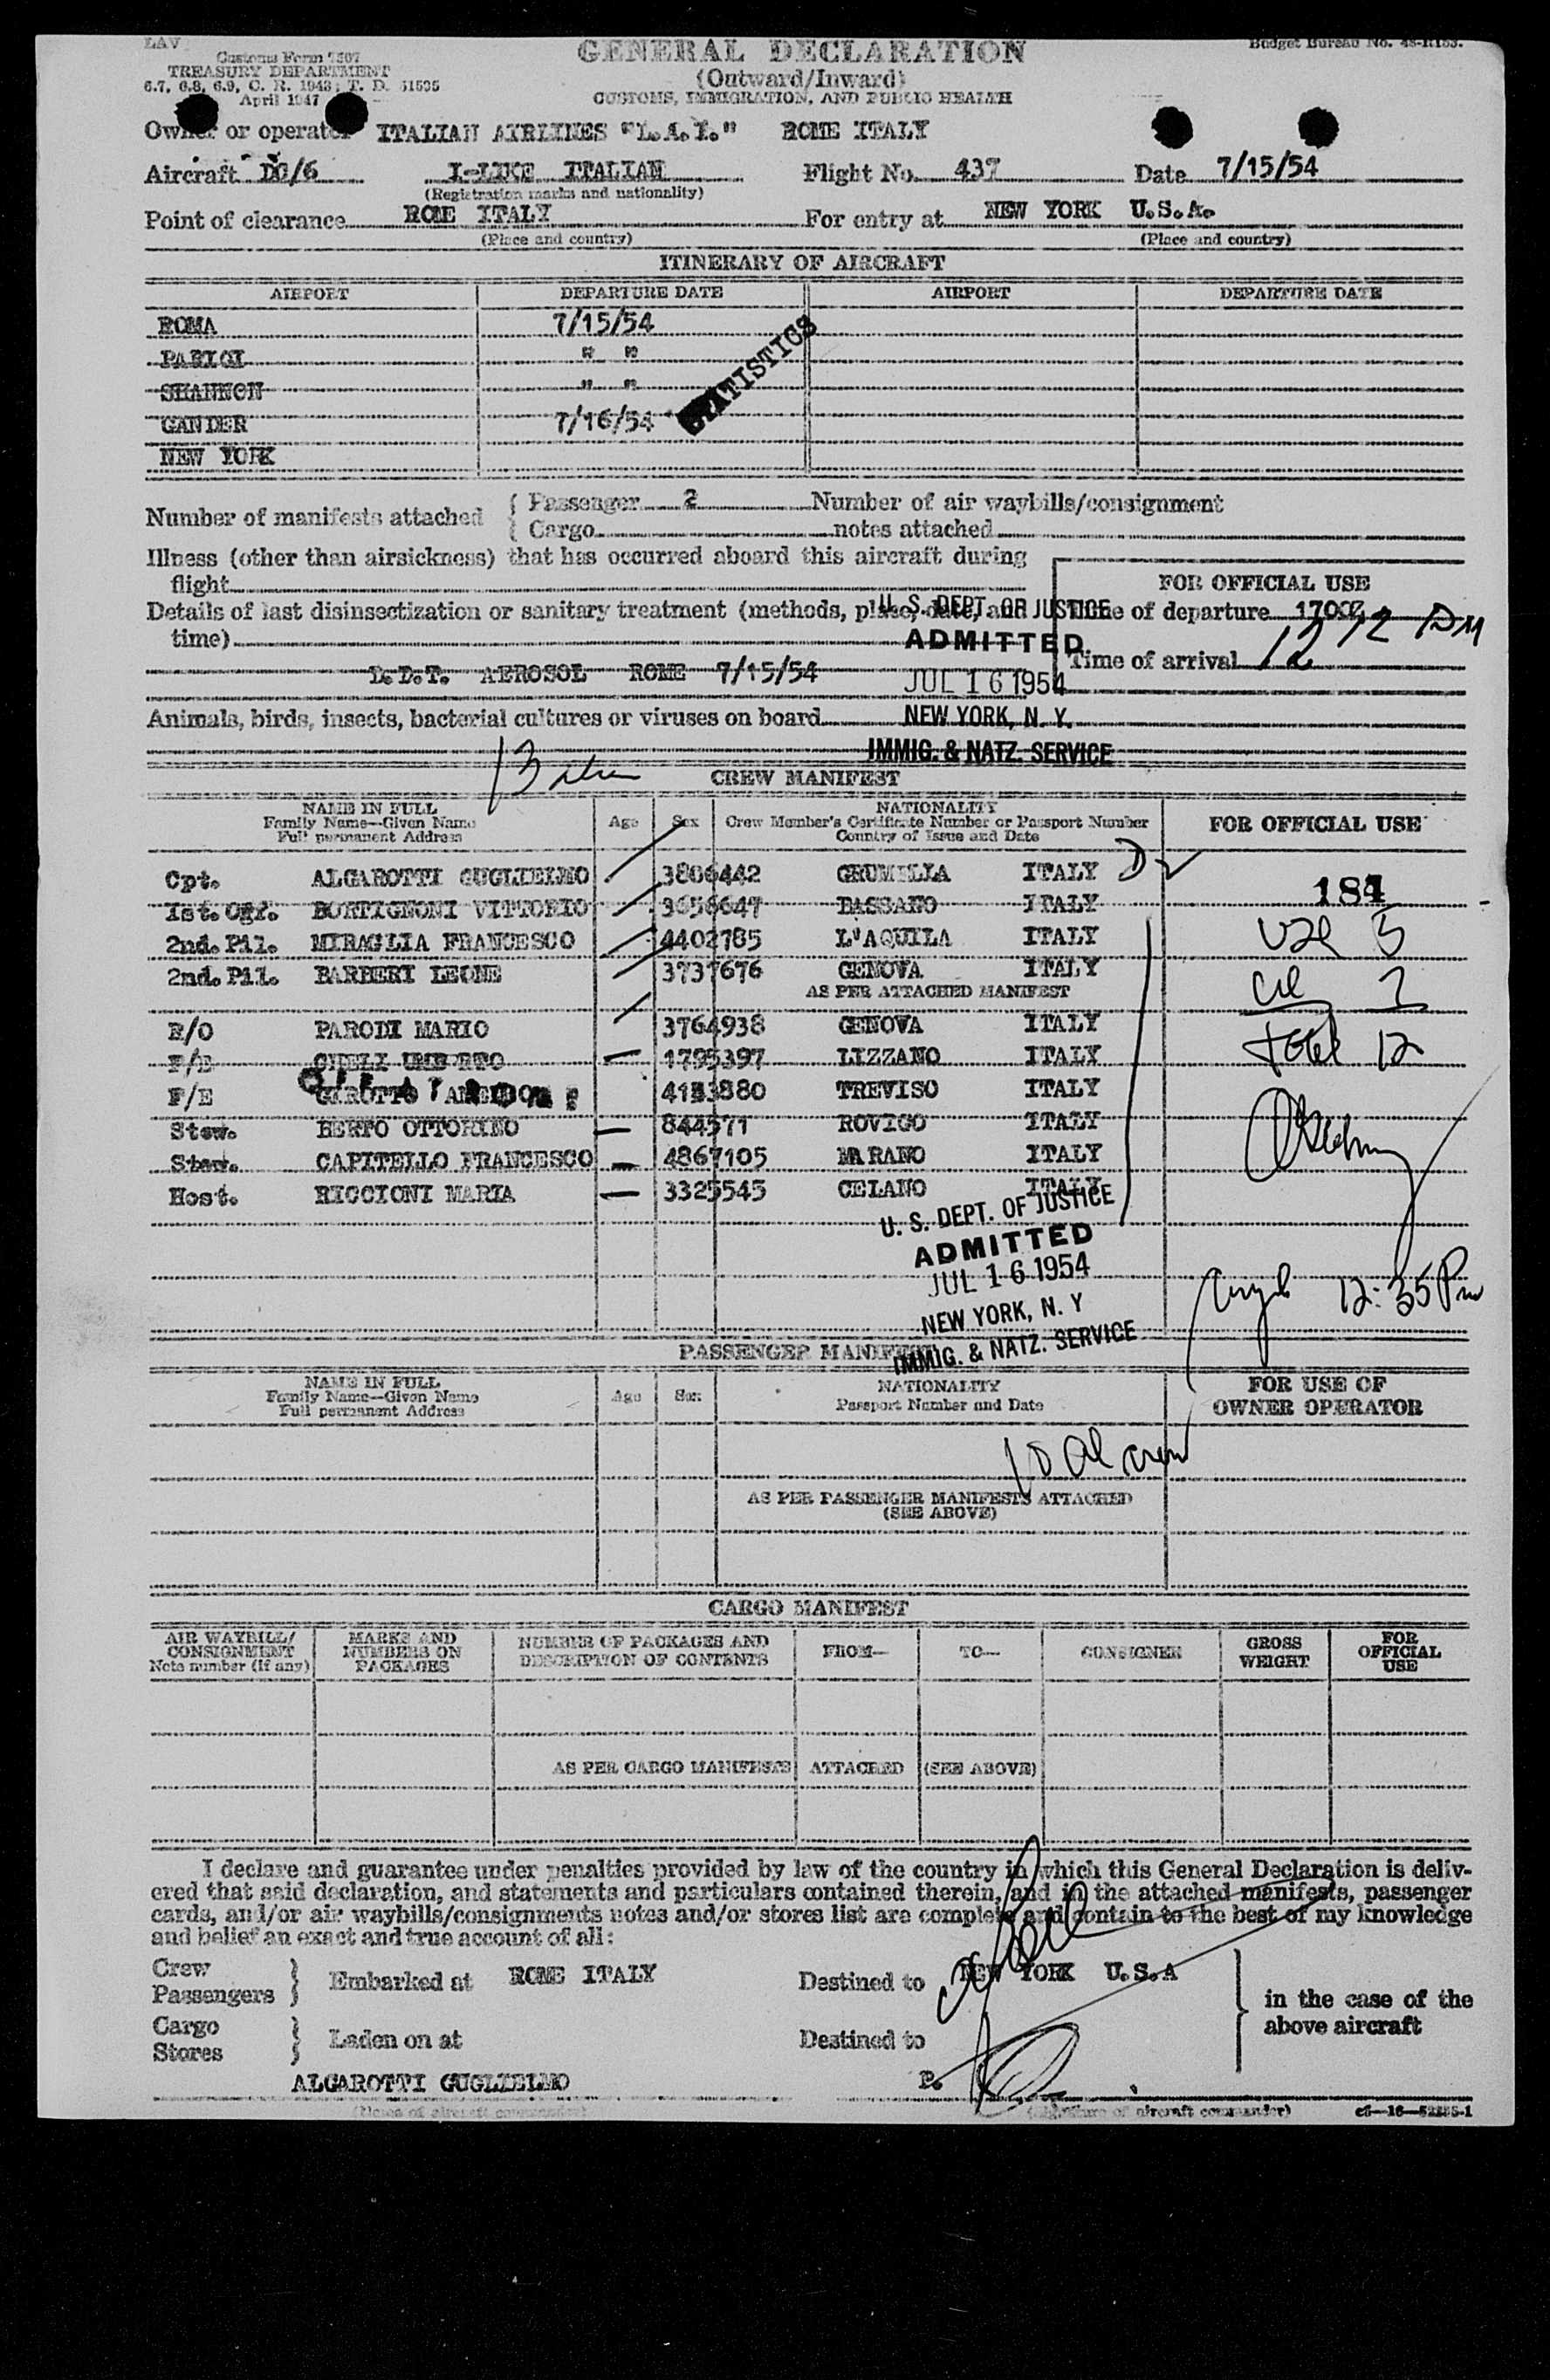 LAV
Customs Form 7507
TREASURY DEPARTMENT
6.7, 6.8, 6.9, C. R. 1943; T. D. 51595
April 1947
GENERAL DECLARATION
(Outward/Inward)
CUSTOMS, IMMIGRATION, AND PUBLIC HEALTH
Budget Bureau No. 48-R153.
Owner or operator ITALIAN AIRLINES "L.A.I." ROME ITALY
Aircraft DC/6 I-LIKE ITALIAN Flight No. 437 Date 7/15/54
(Registration marks and nationality)
Point of clearance ROME ITALY For entry at NEW YORK U.S.A.
(Place and country) (Place and country)
ITINERARY OF AIRCRAFT
AIRPORT DEPARTURE DATE AIRPORT DEPARTURE DATE
ROMA 7/15/54
PARIGI " "
SHANNON " "
GANDER 7/16/54
NEW YORK
STATISTICS
Number of manifests attached { Passenger 2 Number of air waybills/consignment
{ Cargo notes attached
Illness (other than airsickness) that has occurred aboard this aircraft during
flight
FOR OFFICIAL USE
Details of last disinsectization or sanitary treatment (methods, place, date, and
time)
Time of departure 1700Z
12 12 PM
Time of arrival
D.D.T. AEROSOL ROME 7/15/54
U. S. DEPT. OF JUSTICE
ADMITTED
JUL 16 1954
NEW YORK, N. Y.
IMMIG. & NATZ. SERVICE
Animals, birds, insects, bacterial cultures or viruses on board
CREW MANIFEST
NAME IN FULL
Family Name—Given Name
Full permanent Address
Age Sex
NATIONALITY
Crew Member's Certificate Number or Passport Number
Country of Issue and Date
FOR OFFICIAL USE
Cpt. ALGAROTTI GUGLIELMO 3806442 GRUMELLA ITALY
184
1st. Ogf. BORTIGNONI VITTORIO 3658647 BASSANO ITALY
2nd. Pil. MIRAGLIA FRANCESCO 4402785 L'AQUILA ITALY
2nd. Pil. BARBERI LEONE 3737676 GENOVA ITALY
AS PER ATTACHED MANIFEST
R/O PARODI MARIO 3764938 GENOVA ITALY
Total 12
F/E CHELI UMBERTO 1795397 LIZZANO ITALY
F/E GAROTTO 4133880 TREVISO ITALY
Stew. BERTO OTTORINO 844571 ROVIGO ITALY
Stew. CAPITELLO FRANCESCO 4867105 MARANO ITALY
Host. RICCIONI MARIA 3325545 CELANO ITALY
U. S. DEPT. OF JUSTICE
ADMITTED
JUL 16 1954
NEW YORK, N. Y
IMMIG. & NATZ. SERVICE
12:35 Pm
PASSENGER MANIFEST
NAME IN FULL
Family Name—Given Name
Full permanent Address
Age Sex
NATIONALITY
Passport Number and Date
FOR USE OF
OWNER OPERATOR
10 al crew
AS PER PASSENGER MANIFESTS ATTACHED
(SEE ABOVE)
CARGO MANIFEST
AIR WAYBILL/
CONSIGNMENT
Note number (if any)
MARKS AND
NUMBERS ON
PACKAGES
NUMBER OF PACKAGES AND
DESCRIPTION OF CONTENTS
FROM— TO— CONSIGNEE
GROSS
WEIGHT
FOR
OFFICIAL
USE
AS PER CARGO MANIFESTS ATTACHED (SEE ABOVE)
I declare and guarantee under penalties provided by law of the country in which this General Declaration is deliv-
ered that said declaration, and statements and particulars contained therein, and in the attached manifests, passenger
cards, and/or air waybills/consignments notes and/or stores list are complete and contain to the best of my knowledge
and belief an exact and true account of all:
Crew
Passengers } Embarked at ROME ITALY Destined to NEW YORK U.S.A
in the case of the
above aircraft
Cargo
Stores } Laden on at Destined to
ALGAROTTI GUGLIELMO P.
(Name of aircraft commander) (Signature of aircraft commander) c6—16—52235-1